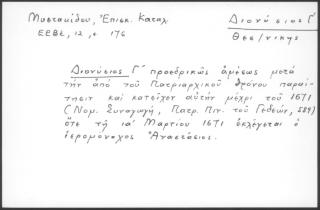 Μυστακίδου, Ἐπισκ. Καταλ.
Διονύσιος Γ´
ΕΕΒΣ, 12, σ. 176
Θεσ/νικης
Διονύσιος Γ´ προεδρικῶς ἀμέσως μετὰ
τὴν ἀπὸ τοῦ Πατριαρχικοῦ θρόνου παραί-
τησιν καὶ κατεῖχεν αὐτὴν μέχρι τοῦ 1671
(Νομ. Συναγωγή, Πατρ. Πιν. τοῦ Γεδεών, 589)
ὅτε τῇ ια´ Μαρτίου 1671 ἐκλέγεται ὁ
ἱερομόναχος Ἀναστάσιος.